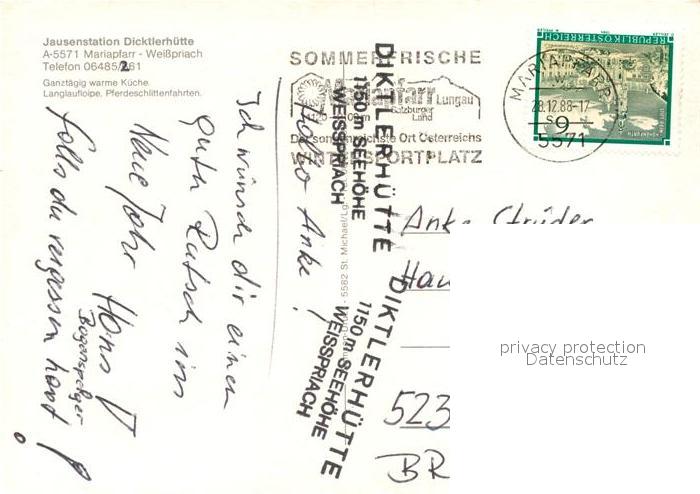 Jausenstation Dicktlerhütte
A-5571 Mariapfarr - Weißpriach
Telefon 06485/261
2
Ganztägig warme Küche.
Langlaufloipe. Pferdeschlittenfahrten.
SOMMERFRISCHE
Mariapfarr
Lungau
1120 m
Salzburger
Land
Der sonnenreichste Ort Österreichs
WINTERSPORTPLATZ
MARIAPFARR
28.12.88-17
9
5571
REPUBLIK ÖSTERREICH
S
DIKTLERHÜTTE
1150 m SEEHÖHE
WEISSPRIACH
DIKTLERHÜTTE
1150 m SEEHÖHE
WEISSPRIACH
5582 St. Michael/Lg.
Hallo Anke!
Ich wünsch dir einen
guten Rutsch ins
Neue Jahr Hans
falls du vergessen hast!
Anke Strüder
Hau
523
BR
privacy protection
Datenschutz